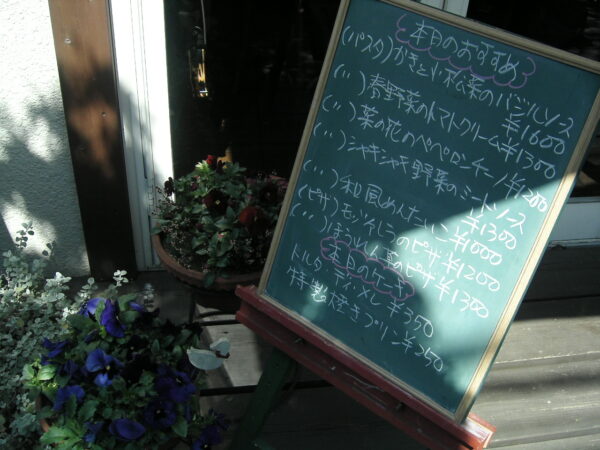 本日のおすすめ
(パスタ)かきと小松菜のバジルソース
¥1600
(〃)春野菜のトマトクリーム¥1300
(〃)菜の花のペペロンチーノ¥1200
(〃)シャキシャキ野菜のミートソース
¥1300
(〃)和風めんたいこ¥1000
(ピザ)モッツァレラのピザ¥1200
(〃)ほうれん草のピザ¥1300
本日のケーキ
トルタ ディ メレ ¥350
特製焼きプリン¥250